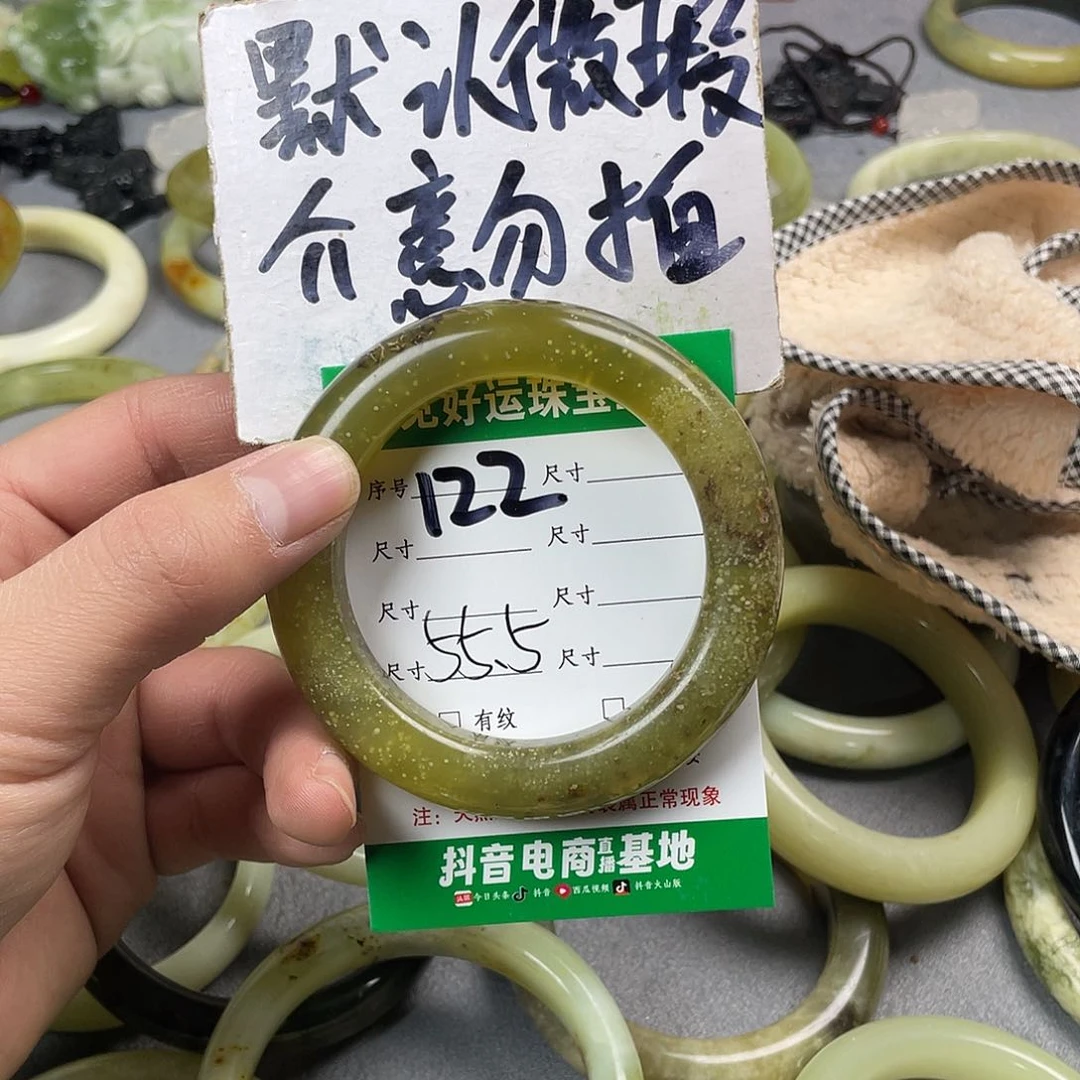 默认微瑕
介意勿拍
好运珠宝
序号 122 尺寸
尺寸 尺寸
尺寸 尺寸
尺寸 55.5 尺寸
□ 有纹 □
注: 天然 属正常现象
抖音电商直播基地
头条 今日头条 抖音 西瓜视频 抖音火山版